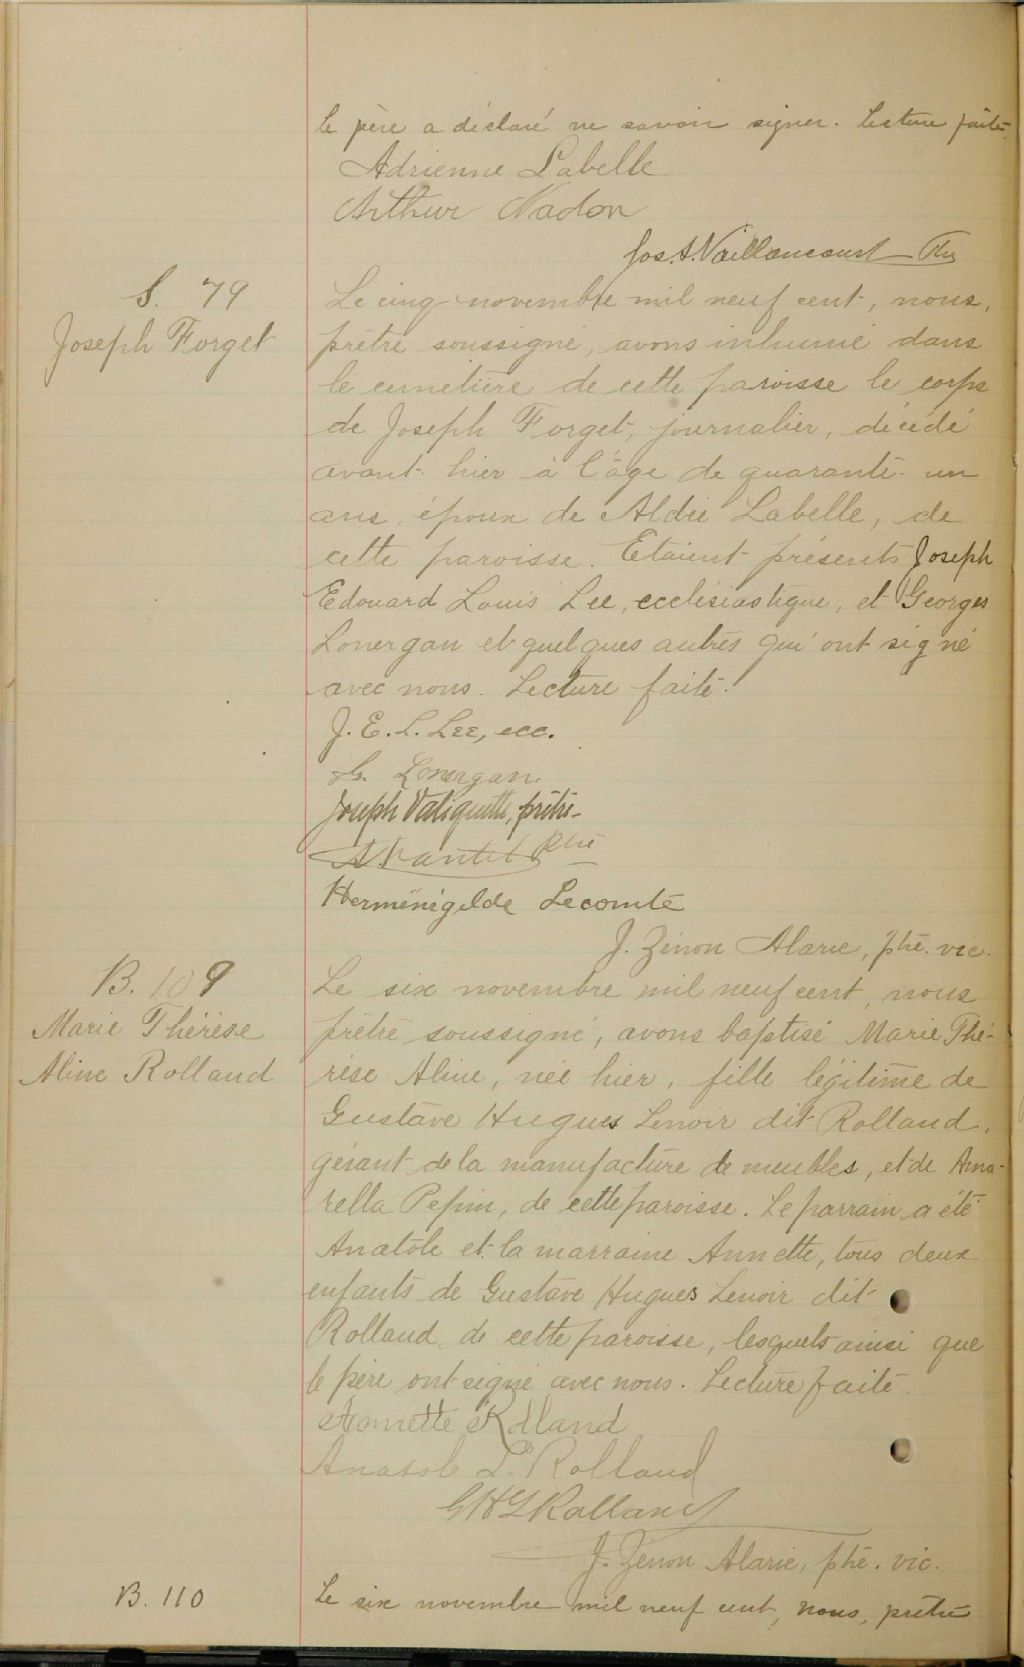 le père a déclaré ne savoir signer. Lecture faite.
Adrienne Labelle
Arthur Nadon
Jos. A. Vaillancourt Ptre
S. 79
Joseph Forget
Le cinq novembre mil neuf cent, nous,
prêtre soussigné, avons inhumé dans
le cimetière de cette paroisse le corps
de Joseph Forget, journalier, décédé
avant-hier à l'âge de quarante-un
ans, époux de Aldée Labelle, de
cette paroisse. Etaient présents Joseph
Edouard Louis Lee, ecclésiastique, et Georges
Lonergan et quelques autres qui ont signé
avec nous. Lecture faite.
J. E. L. Lee, ecc.
G. Lonergan.
Joseph Valiquette, prêtre
ptre
Herménégilde Lecomte
J. Zénon Alarie, ptre. vic.
B. 109
Marie Thérèse
Aline Rolland
Le six novembre mil neuf cent, nous
prêtre soussigné, avons baptisé Marie Thé-
rèse Aline, née hier, fille légitime de
Gustave Hugues Lenoir dit Rolland,
gérant de la manufacture de meubles, et de Ama-
rella Pepin, de cette paroisse. Le parrain a été
Anatole et la marraine Annette, tous deux
enfants de Gustave Hugues Lenoir dit
Rolland, de cette paroisse, lesquels ainsi que
le père ont signé avec nous. Lecture faite.
Annette Rolland
Anatole L. Rolland
GHL Rolland
J. Zénon Alarie, ptre. vic.
B. 110
Le six novembre mil neuf cent, nous, prêtre